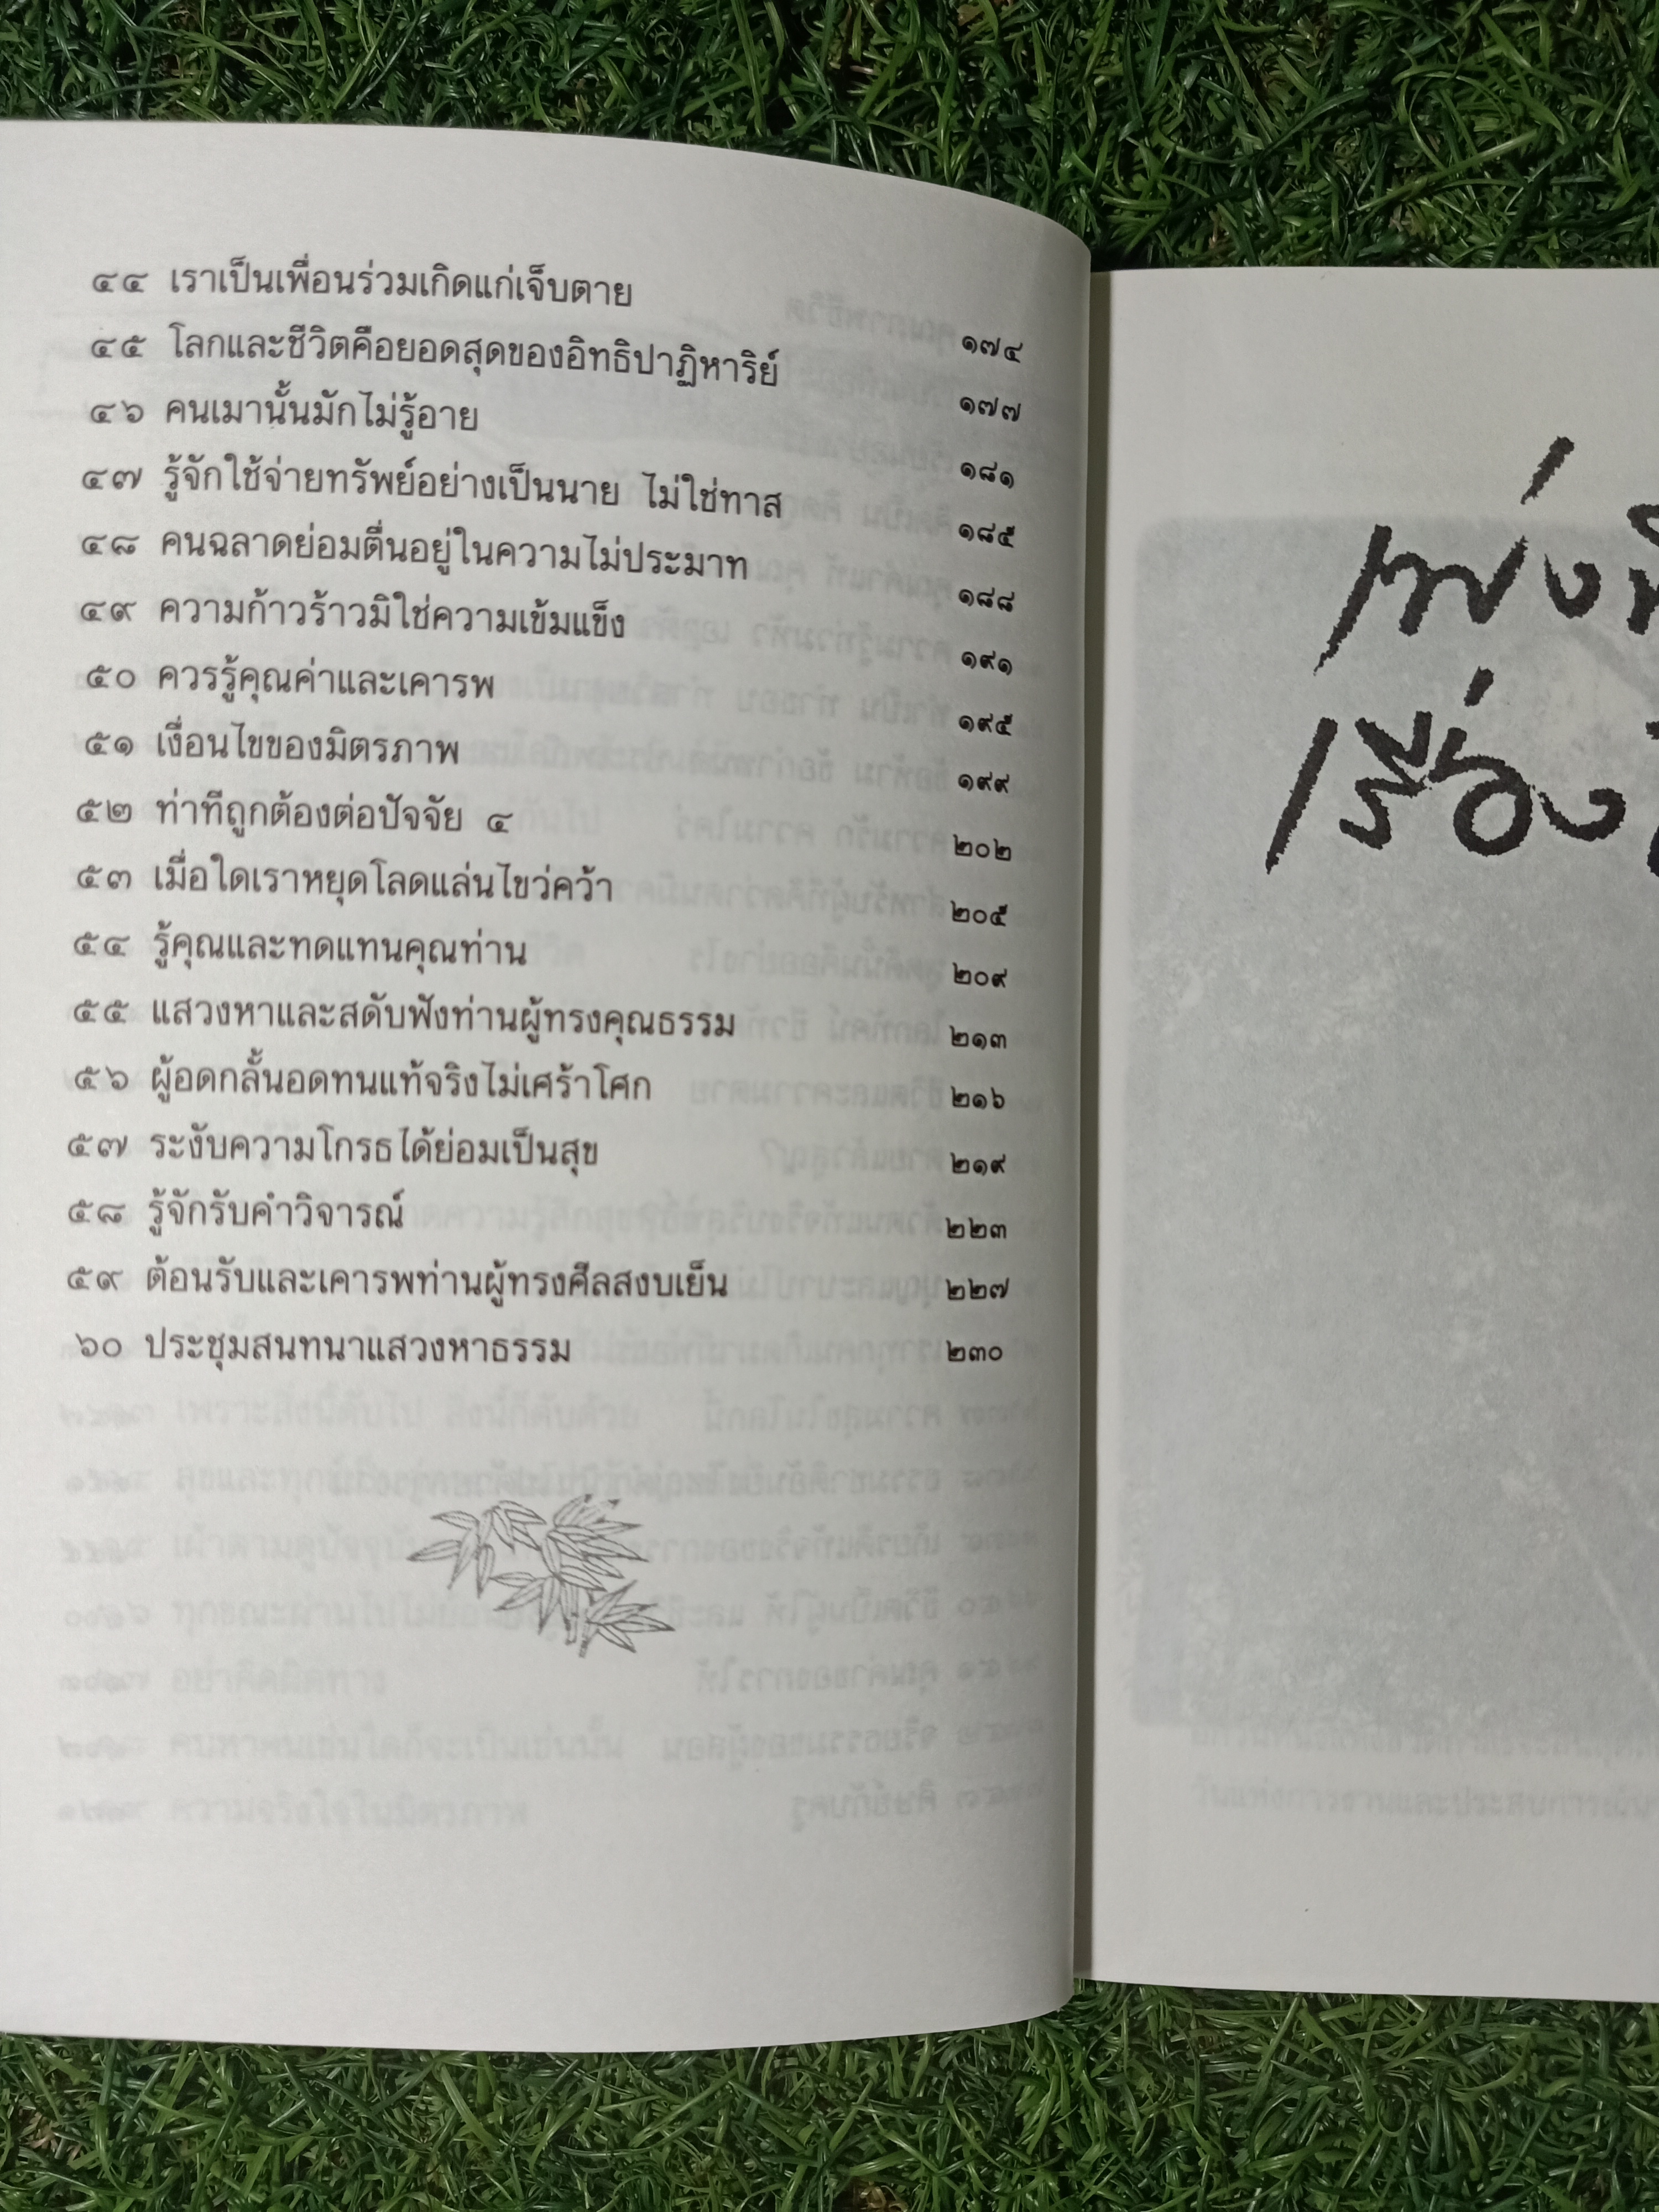 ๔๔ เราเป็นเพื่อนร่วมเกิดแก่เจ็บตาย ๑๗๔
๔๕ โลกและชีวิตคือยอดสุดของอิทธิปาฏิหาริย์ ๑๗๗
๔๖ คนเมานั้นมักไม่รู้อาย ๑๘๑
๔๗ รู้จักใช้จ่ายทรัพย์อย่างเป็นนาย ไม่ใช่ทาส ๑๘๕
๔๘ คนฉลาดย่อมตื่นอยู่ในความไม่ประมาท ๑๘๘
๔๙ ความก้าวร้าวมิใช่ความเข้มแข็ง ๑๙๑
๕๐ ควรรู้คุณค่าและเคารพ ๑๙๕
๕๑ เงื่อนไขของมิตรภาพ ๑๙๙
๕๒ ท่าทีถูกต้องต่อปัจจัย ๔ ๒๐๒
๕๓ เมื่อใดเราหยุดโลดแล่นไขว่คว้า ๒๐๕
๕๔ รู้คุณและทดแทนคุณท่าน ๒๐๙
๕๕ แสวงหาและสดับฟังท่านผู้ทรงคุณธรรม ๒๑๓
๕๖ ผู้อดกลั้นอดทนแท้จริงไม่เศร้าโศก ๒๑๖
๕๗ ระงับความโกรธได้ย่อมเป็นสุข ๒๑๙
๕๘ รู้จักรับคำวิจารณ์ ๒๒๓
๕๙ ต้อนรับและเคารพท่านผู้ทรงศีลสงบเย็น ๒๒๗
๖๐ ประชุมสนทนาแสวงหาธรรม ๒๓๐
เรื่อง